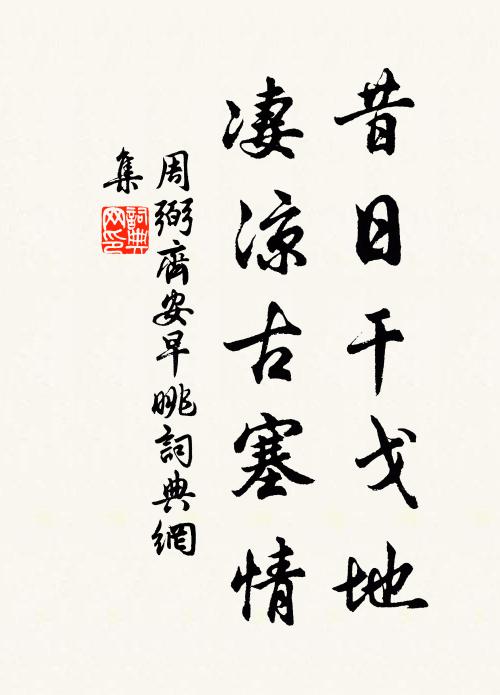 昔日干戈地
凄涼古塞情
周弼齊安早眺詞典網
集
詞典
网印